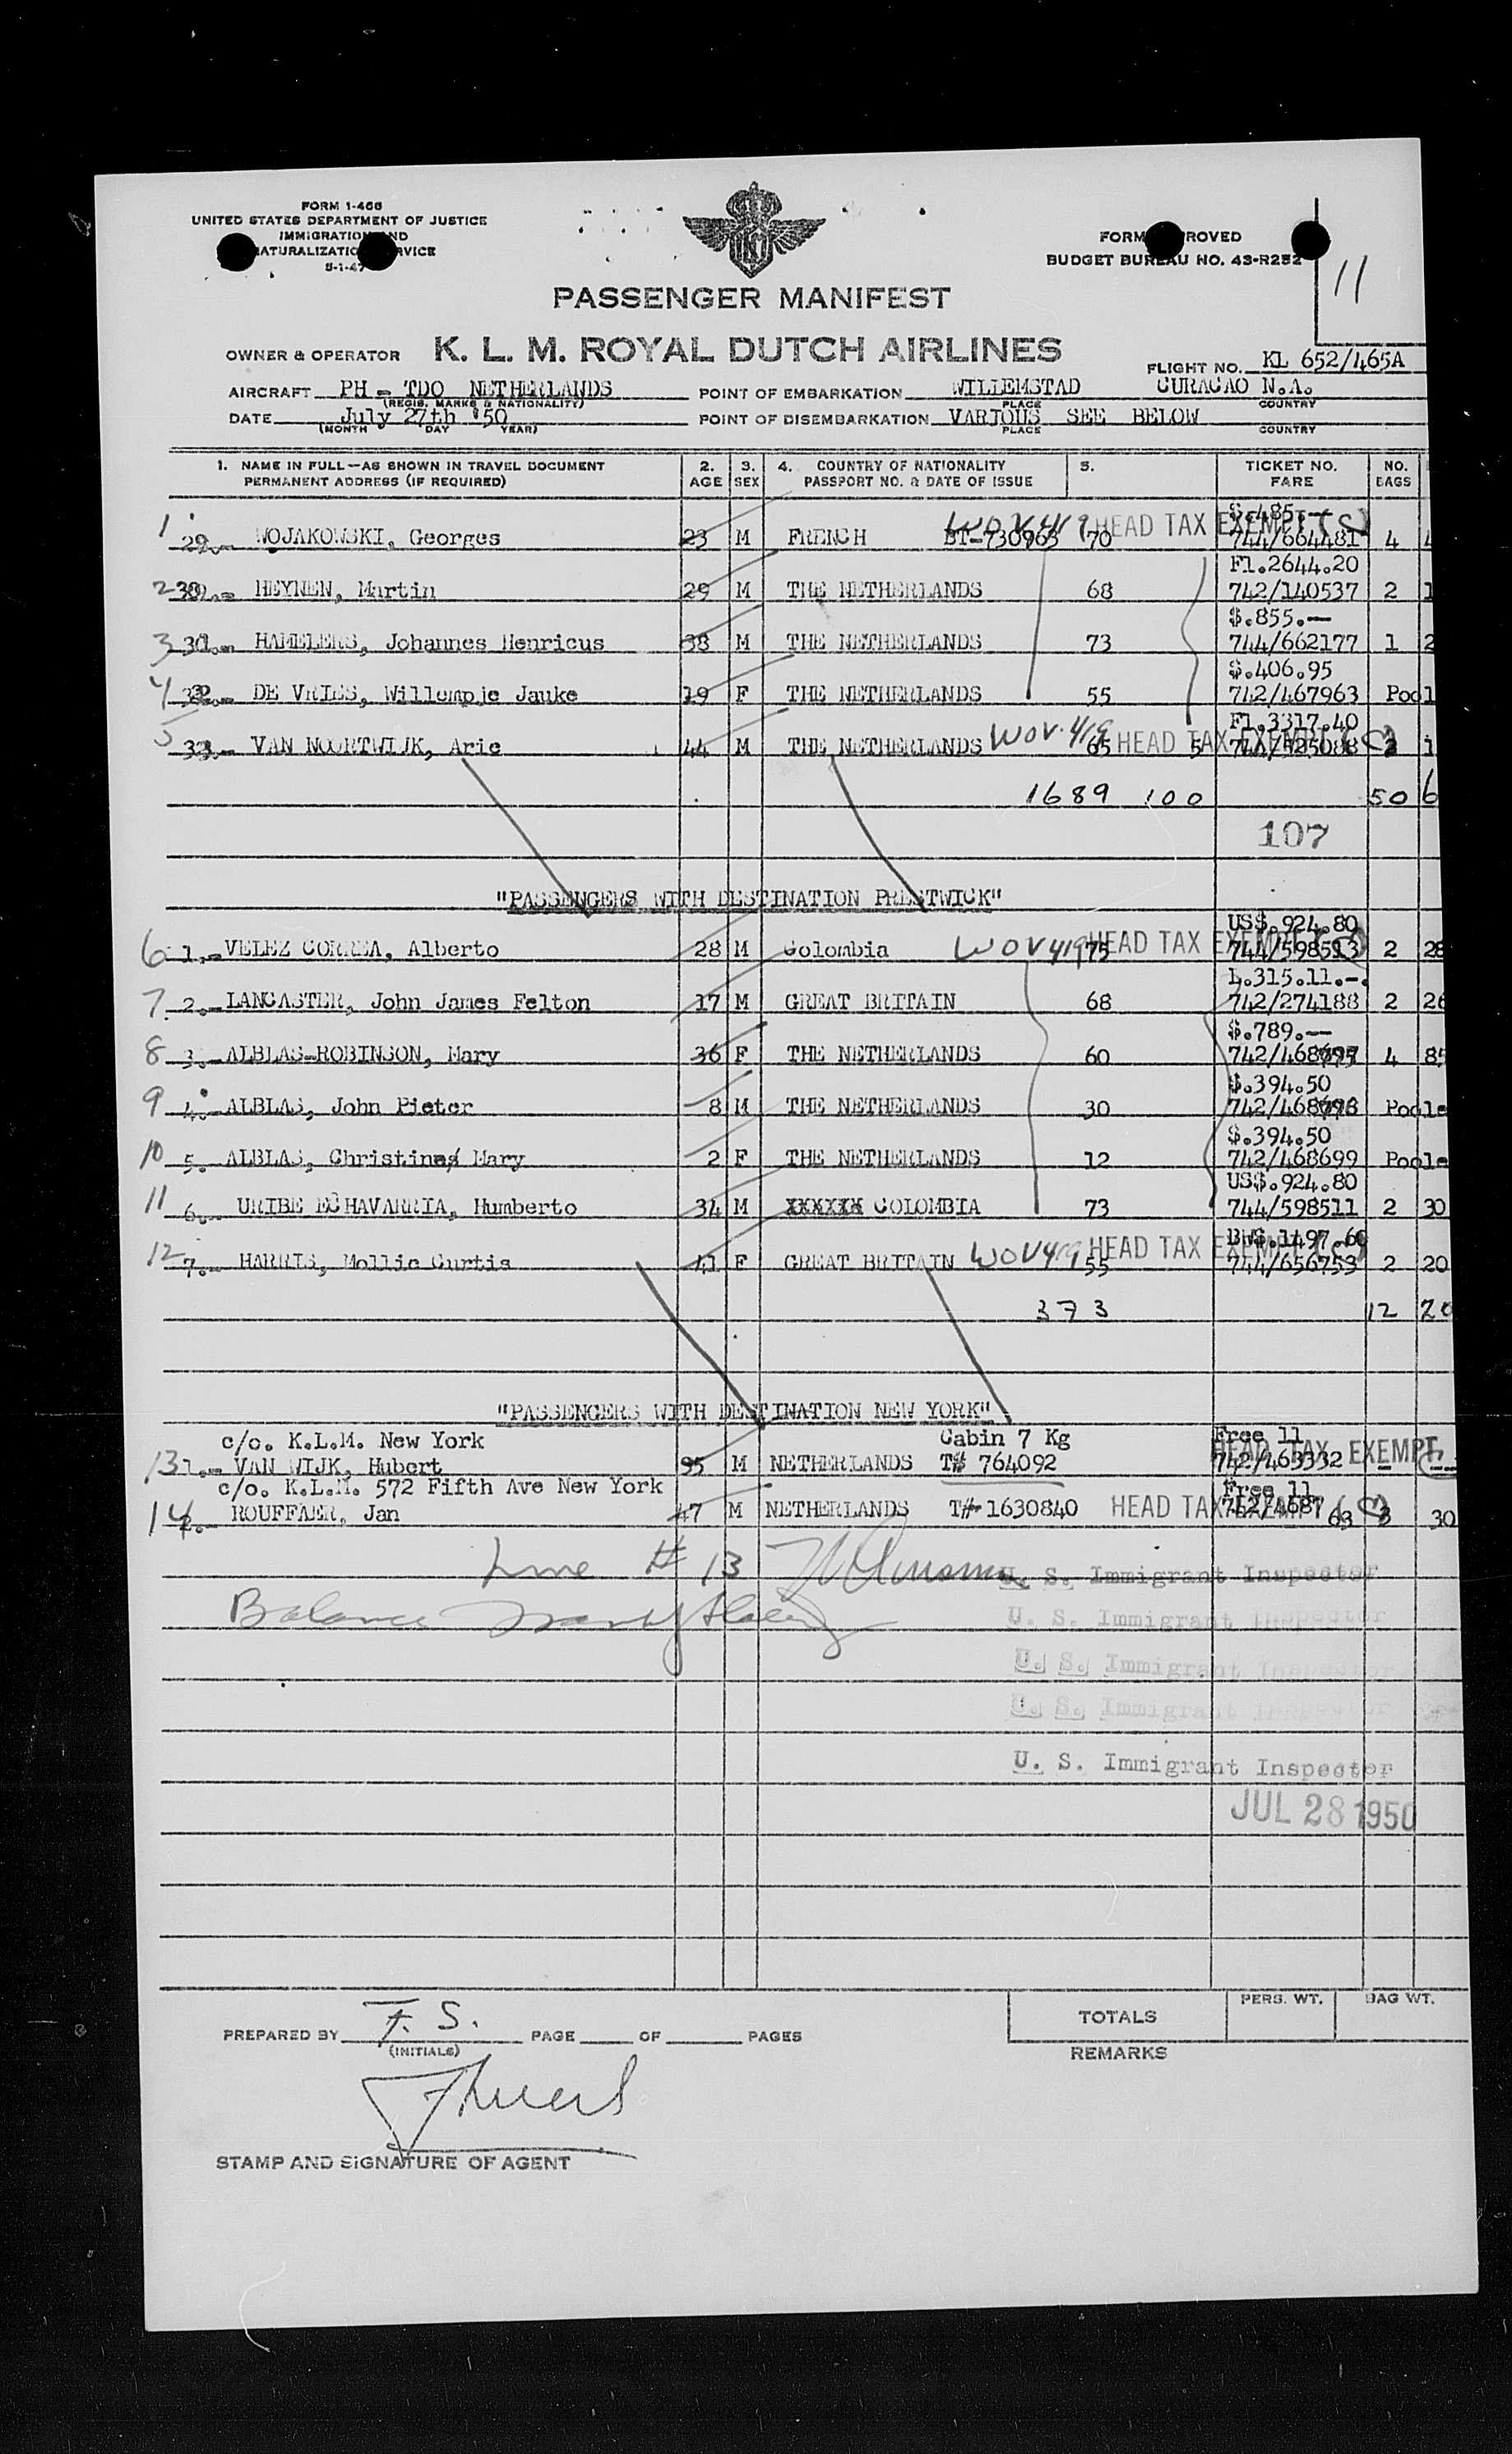 FORM I-466
UNITED STATES DEPARTMENT OF JUSTICE
IMMIGRATION AND
NATURALIZATION SERVICE
5-1-47
FORM APPROVED
BUDGET BUREAU NO. 43-R252
11
PASSENGER MANIFEST
OWNER & OPERATOR K. L. M. ROYAL DUTCH AIRLINES
FLIGHT NO. KL 652/465A
AIRCRAFT PH - TDO NETHERLANDS POINT OF EMBARKATION WILLEMSTAD CURACAO N.A.
(REGIS. MARKS & NATIONALITY) PLACE COUNTRY
DATE July 27th '50 POINT OF DISEMBARKATION VARIOUS SEE BELOW
(MONTH DAY YEAR) PLACE COUNTRY
1. NAME IN FULL—AS SHOWN IN TRAVEL DOCUMENT 2. 3. 4. COUNTRY OF NATIONALITY 5. TICKET NO. NO.
PERMANENT ADDRESS (IF REQUIRED) AGE SEX PASSPORT NO. & DATE OF ISSUE FARE BAGS
$.485.—
1 29.- WOJAKOWSKI, Georges 23 M FRENCH BT-730963 WOV419 70 HEAD TAX EXEMPT 744/664481 4
Fl.2644.20
2 30.- HEYNEN, Martin 29 M THE NETHERLANDS 68 742/140537 2 1
$.855.—
3 31.- HAMELERS, Johannes Henricus 38 M THE NETHERLANDS 73 744/662177 1 2
$.406.95
4 32.- DE VRIES, Willempje Jauke 19 F THE NETHERLANDS 55 742/467963 Pool
Fl.3317.40
5 33.- VAN NOORTWIJK, Arie 44 M THE NETHERLANDS WOV.419 65 HEAD TAX EXEMPT 5 742/525088 2 1
1689 100 50 6
107
"PASSENGERS WITH DESTINATION PRESTWICK"
US$.924.80
6 1.- VELEZ CORREA, Alberto 28 M Colombia WOV419 75 HEAD TAX EXEMPT 744/598513 2 28
L.315.11.-.
7 2.- LANCASTER, John James Felton 17 M GREAT BRITAIN 68 742/274188 2 26
$.789.—
8 3.- ALBLAS-ROBINSON, Mary 36 F THE NETHERLANDS 60 742/468697 4 85
$.394.50
9 4.- ALBLAS, John Pieter 8 M THE NETHERLANDS 30 742/468698 Poole
$.394.50
10 5. ALBLAS, Christina Mary 2 F THE NETHERLANDS 12 742/468699 Poole
US$.924.80
11 6.- URIBE ECHAVARRIA, Humberto 34 M XXXXXX COLOMBIA 73 744/598511 2 30
BW$.1497.60
12 7.- HARRIS, Mollie Curtis 41 F GREAT BRITAIN WOV419 55 HEAD TAX EXEMPT 744/656753 2 20
373 12 20
"PASSENGERS WITH DESTINATION NEW YORK"
c/o. K.L.M. New York Cabin 7 Kg Free 11
13 1.- VAN WIJK, Hubert 95 M NETHERLANDS T# 764092 742/463332 HEAD TAX EXEMPT - --
c/o. K.L.M. 572 Fifth Ave New York Free 11
14 2.- ROUFFAER, Jan 47 M NETHERLANDS T# 1630840 HEAD TAX EXEMPT 742/468763 3 30
Line # 13
U. S. Immigrant Inspector
Balance
U. S. Immigrant Inspector
U. S. Immigrant Inspector
U. S. Immigrant Inspector
U. S. Immigrant Inspector
JUL 28 1950
PREPARED BY F. S. PAGE OF PAGES
(INITIALS)
TOTALS PERS. WT. BAG WT.
REMARKS
STAMP AND SIGNATURE OF AGENT